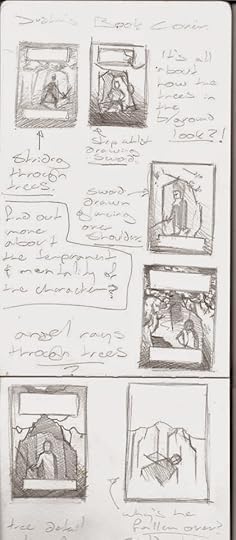 Justin's Book Cover
It's all
about
how the
trees in
the
bryground
look?!
Step whilst
drawing
sword.
Striding
through
trees.
sword
drawn
glancing
over
shoulder.
find out
more
about
the temperament
& mentality of
the character?
angel rays
through trees
?
tree detail
who's he
fallen over?